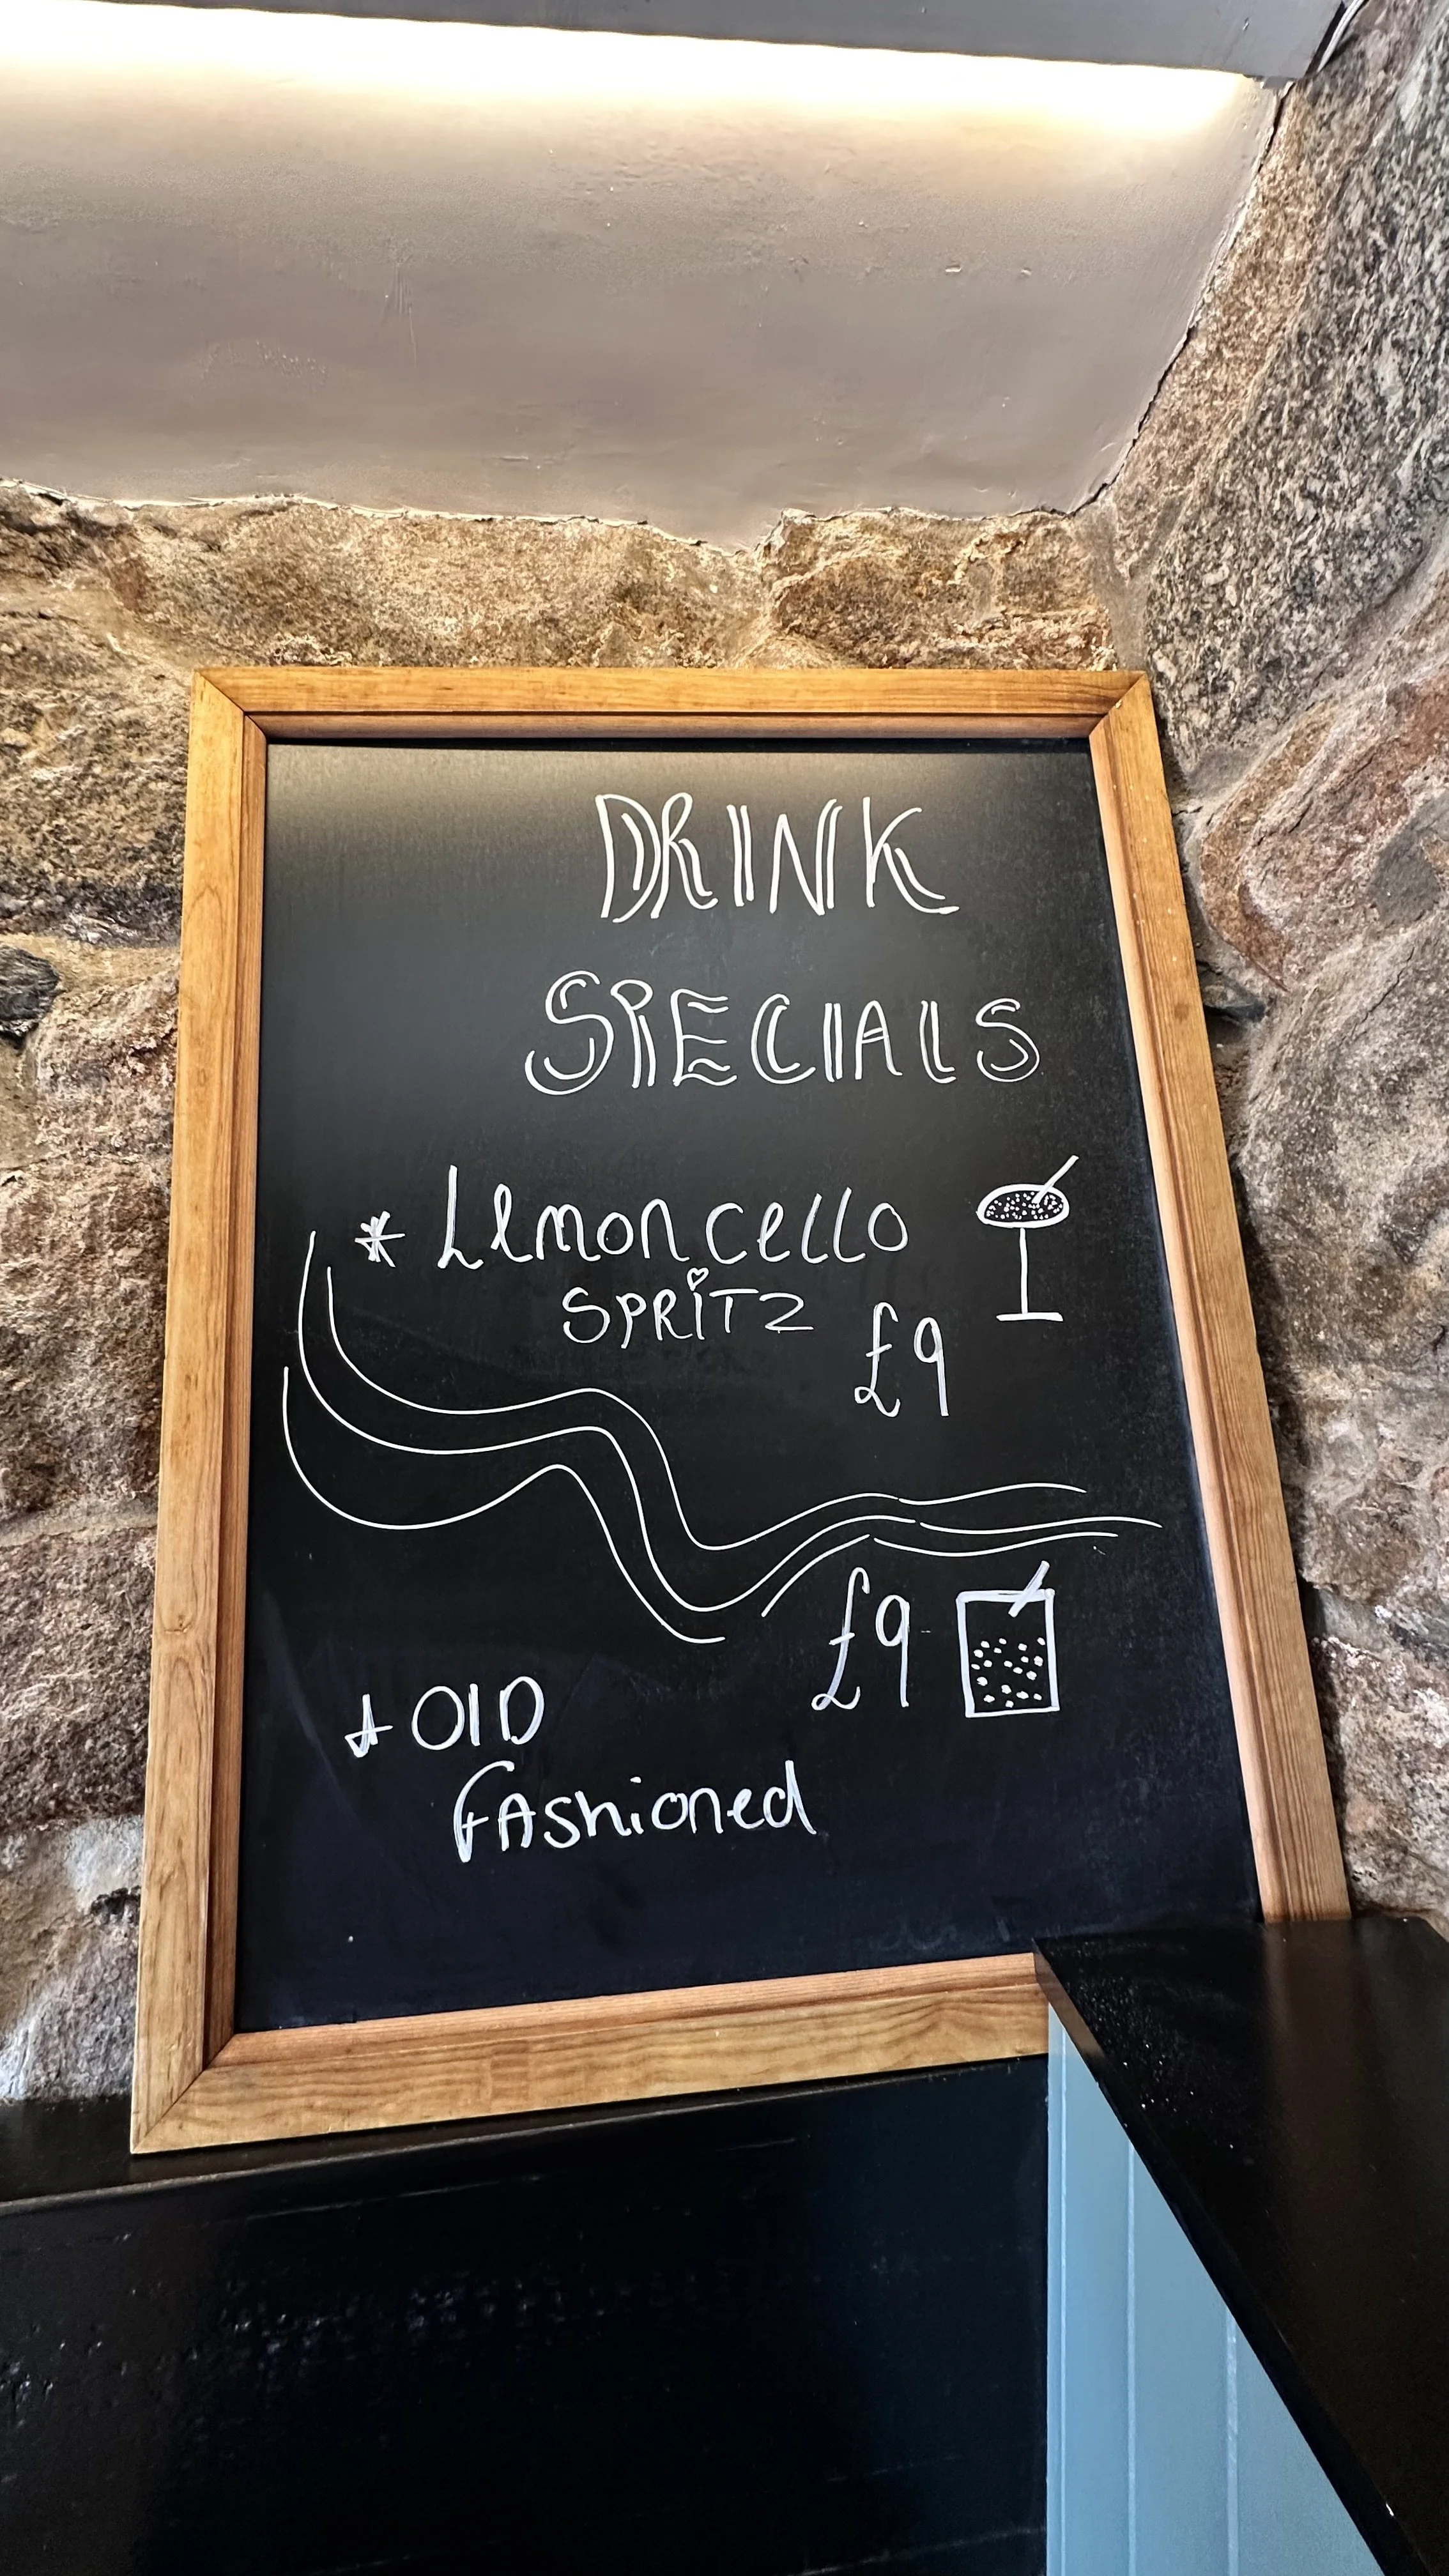 DRINK
SPECIALS
* Lemoncello
SPRITZ
£9
£9
* OlD
fAshioned